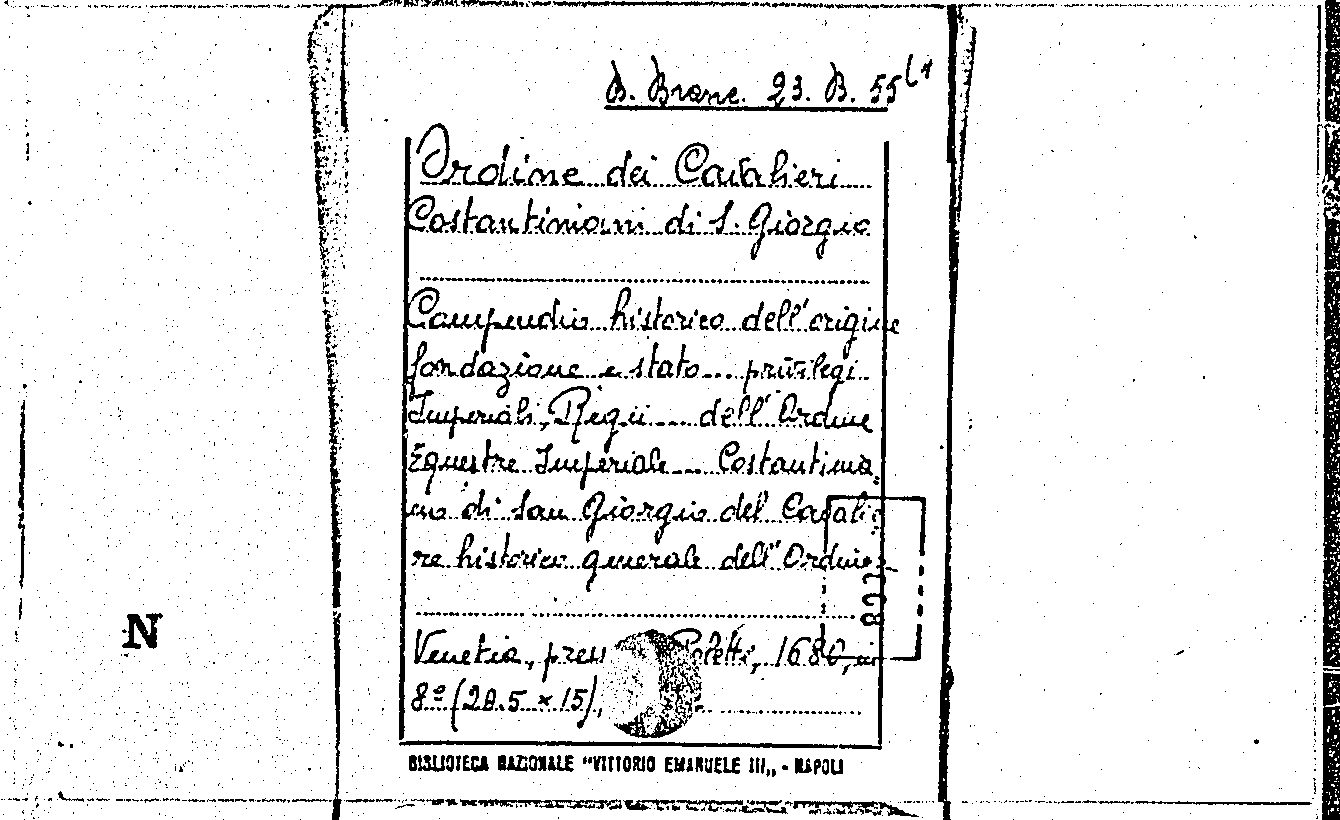 B. Branc. 23. B. 55
Ordine dei Cavalieri
Costantiniani di S. Giorgio
Compendio historico dell'origine
fondazione e stato... privilegi
Imperiali, Regii.... dell'Ordine
Equestre Imperiale.... Costantinia
no di San Giorgio del Cavalie
re historico generale dell'Ordine
822
Venetia, press Poletti, 1680, in
8º (20.5 × 15),
BIBLIOTECA NAZIONALE "VITTORIO EMANUELE III,, - NAPOLI
N